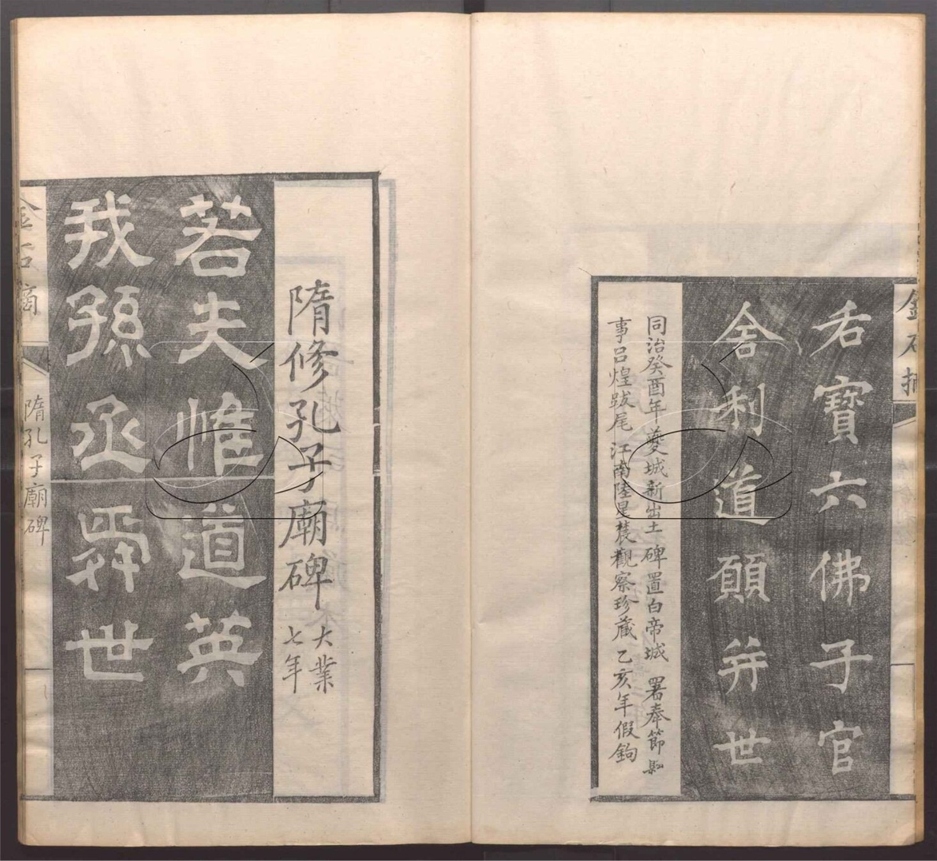 金石摘
寶六佛子官
舍利道願并世
同治癸酉年夔城新出土碑置白帝城 署奉節縣
事呂煌跋尾 江南陸星農觀察珍藏 乙亥年假鉤
隋修孔子廟碑 大業
七年
若夫惟道英
我孫丞世
金石摘 隋孔子廟碑